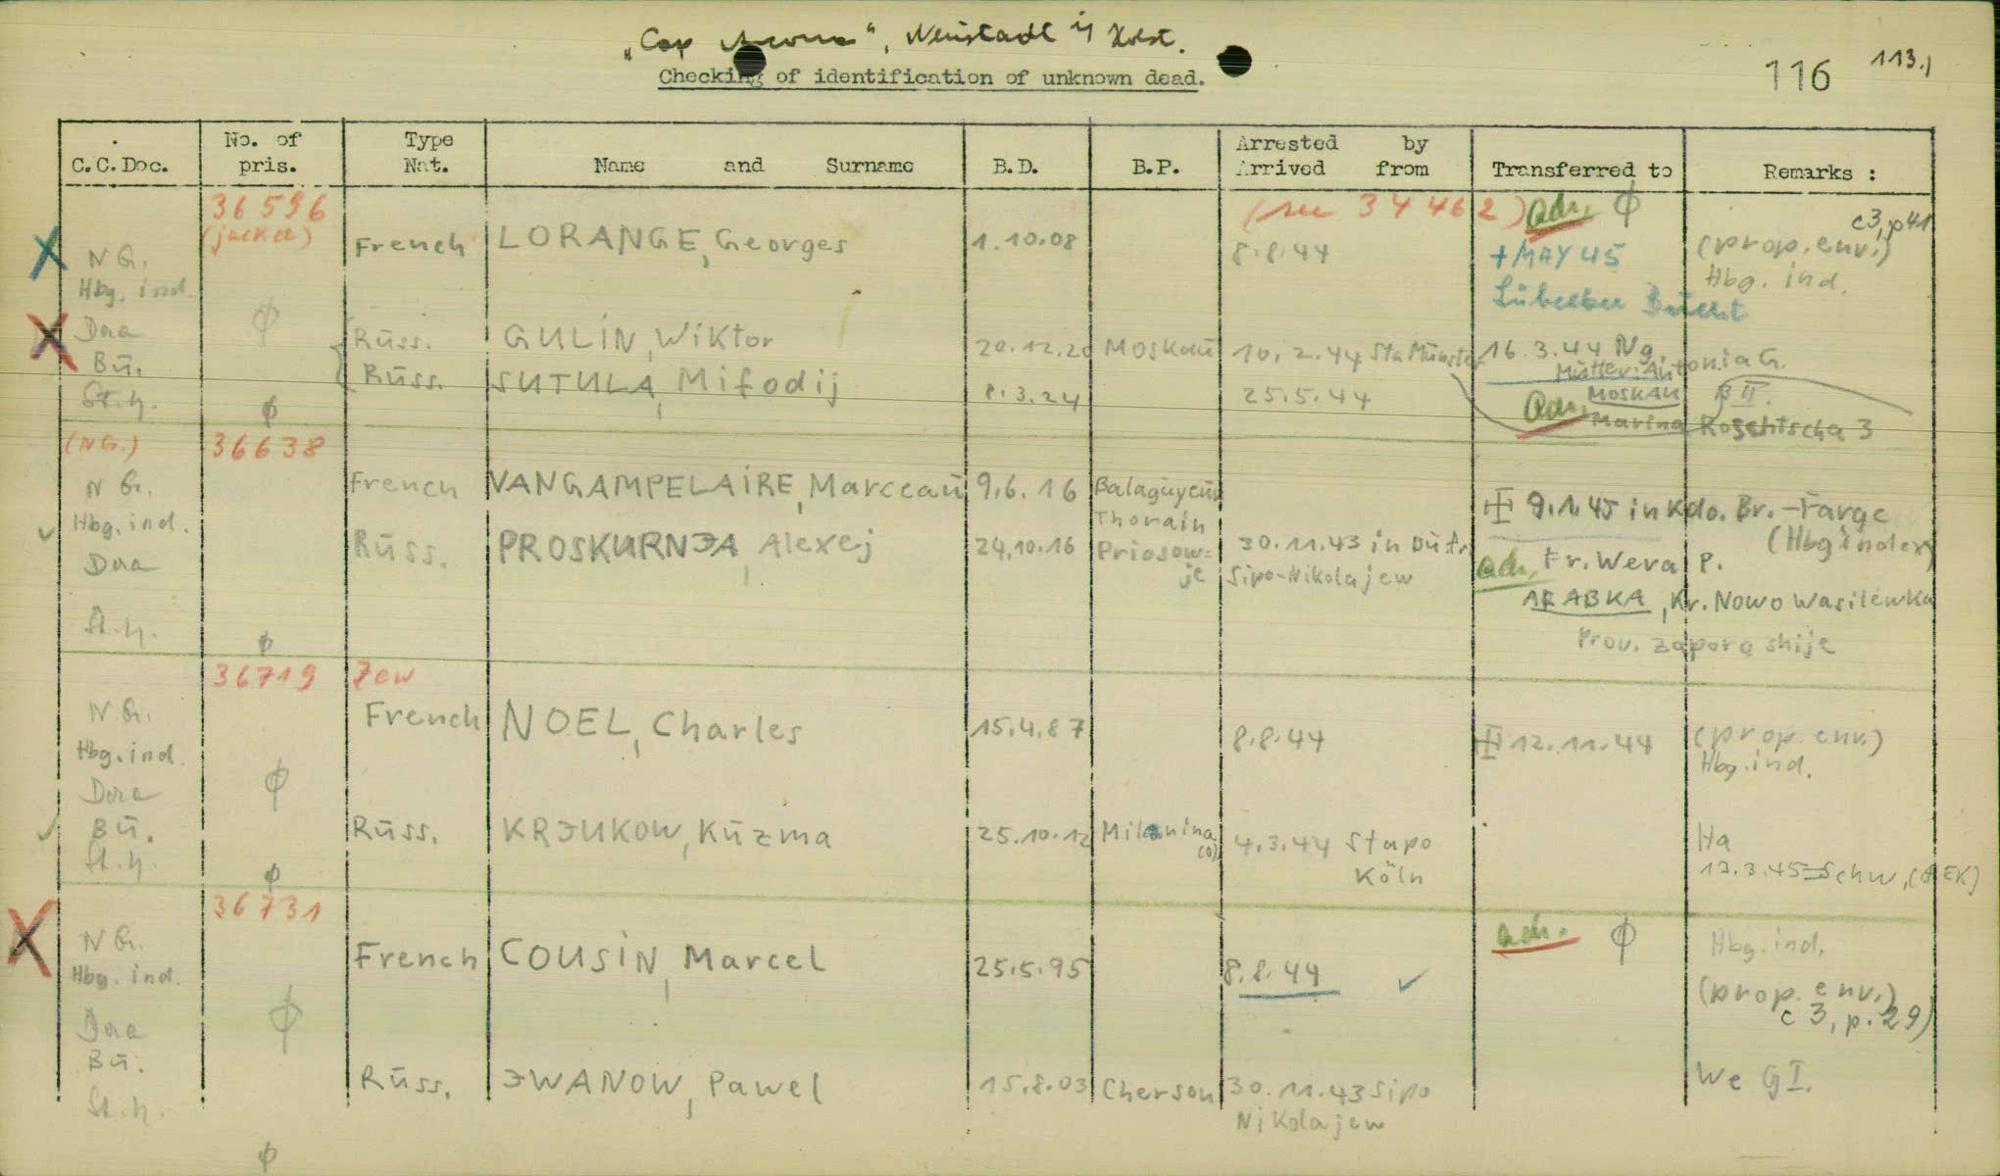 „Cap Arcona“, Neustadt i/ Holst.
Checking of identification of unknown dead.
116 113.)
C.C.Doc. No. of pris. Type Nat. Name and Surname B.D. B.P. Arrested by Arrived from Transferred to Remarks :
36596 (see 34462) adr. ϕ c3, p41
(jacket)
X NG. French LORANGE, Georges 1.10.08 8.8.44 + MAY 45 (prop. env.)
Hbg. ind. Lübecker Bucht Hbg. ind.
X Dora ϕ Russ. GULIN, Wiktor 20.12.20 Moskau 10.2.44 Sta Münster 16.3.44 Ng
Bū. Russ. SUTULA, Mifodij 8.3.24 25.5.44 Mutter: Antonia G.
St.h. ϕ adr. MOSKAU B II.
Marina Roschtscha 3
(NG.) 36638
NG. French VANGAMPELAIRE, Marceau 9.6.16 Balaguyeur Thorain 9.1.45 in Kdo. Br.-Farge
Hbg. ind. (Hbg index)
✓ Russ. PROSKURNJA, Alexej 24.10.16 Priasow=je 30.11.43 in
Dora Sipo-Nikolajew adr. Fr. Wera P.
ARABKA, Kr. Nowo Wasilewka
St.h. ϕ Prov. Zaporoshije
36719 Jew
NG. French NOEL, Charles 15.4.87 8.8.44 12.11.44 (prop. env.)
Hbg. ind. Hbg. ind.
Dora ϕ
✓ Bū. Russ. KRJUKOW, Kuzma 25.10.12 Milanina (o) 4.3.44 Stapo Köln Ha
St.h. ϕ 13.3.45=Schw,
36731
X NG. French COUSIN, Marcel 25.5.95 8.8.44 ✓ adr. ϕ Hbg. ind.
Hbg. ind. (prop. env.)
c 3, p. 29)
Dora ϕ
Bū. Russ. JWANOW, Pawel 15.8.03 Cherson 30.11.43 Sipo We GI.
St.h. Nikolajew
ϕ